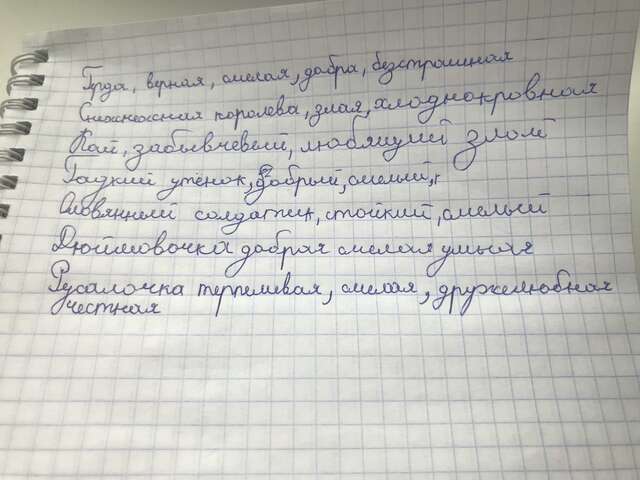 Герда, верная, смелая, добра, безстрашная
Снежнежная королева, злая, хлоднокровная
Кай, забывчевый, любящий злой
Гадкий утёнок, добрый, смелый, г
Оловянный солдатик, стойкий, смелый
Дюймовочка добрая смелая умная
Русалочка терпелевая, смелая, дружелюбная
честная